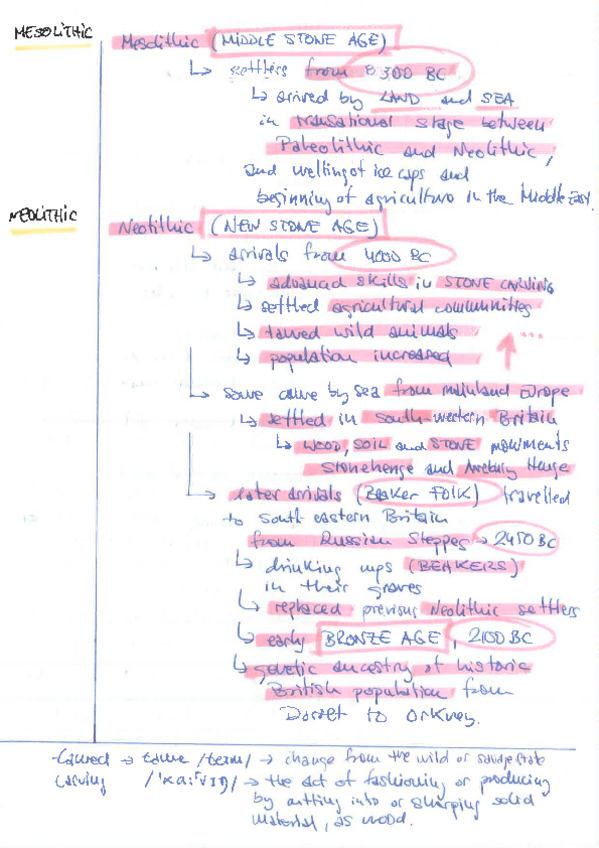 MESOLITHIC
Mesolithic (MIDDLE STONE AGE)
↳ settlers from 8300 BC
↳ arrived by LAND and SEA
in transational stage between
Paleolithic and Neolithic,
and melting of ice caps and
beginning of agriculture in the Middle East.
NEOLITHIC
Neolithic (NEW STONE AGE)
↳ arrivals from 4000 BC
↳ advanced skills in STONE CARVING
↳ settled agricultural communities
↳ tamed wild animals
↳ population increased ↑ ...
↳ some came by sea from mainland Europe
↳ settled in south-western Britain
↳ WOOD, SOIL and STONE monuments
Stonehenge and Avebury Henge
↳ later arrivals (Beaker Folk) travelled
to south eastern Britain
from Russian Steppes → 2450 BC
↳ drinking cups (BEAKERS)
in their graves
↳ replaced previous Neolithic settlers
↳ early BRONZE AGE, 2100 BC
↳ genetic ancestry of historic
British population from
Dorset to Orkney.
tamed → tame /teɪm/ → change from the wild or savage state
carving /ˈkɑːrvɪŋ/ → the act of fashioning or producing
by cutting into or sharping solid
material, as wood.